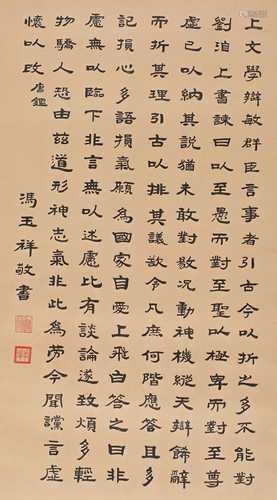 上文學辯敏群臣言事者引古今以折之多不能對
劉洎上書諫曰以至愚而對至聖以極卑而對至尊
虛己以納其說猶未敢對敭況動神機縱天辯飾辭
而折其理引古以排其議欲令凡庶何階應答且多
記損心多語損氣願為國家自愛上飛白答之曰非
慮無以臨下非言無以述慮比有談論遂致煩多輕
物驕人恐由茲道形神志氣非此為勞今聞讜言虛
懷以改
唐鑑
馮玉祥敬書